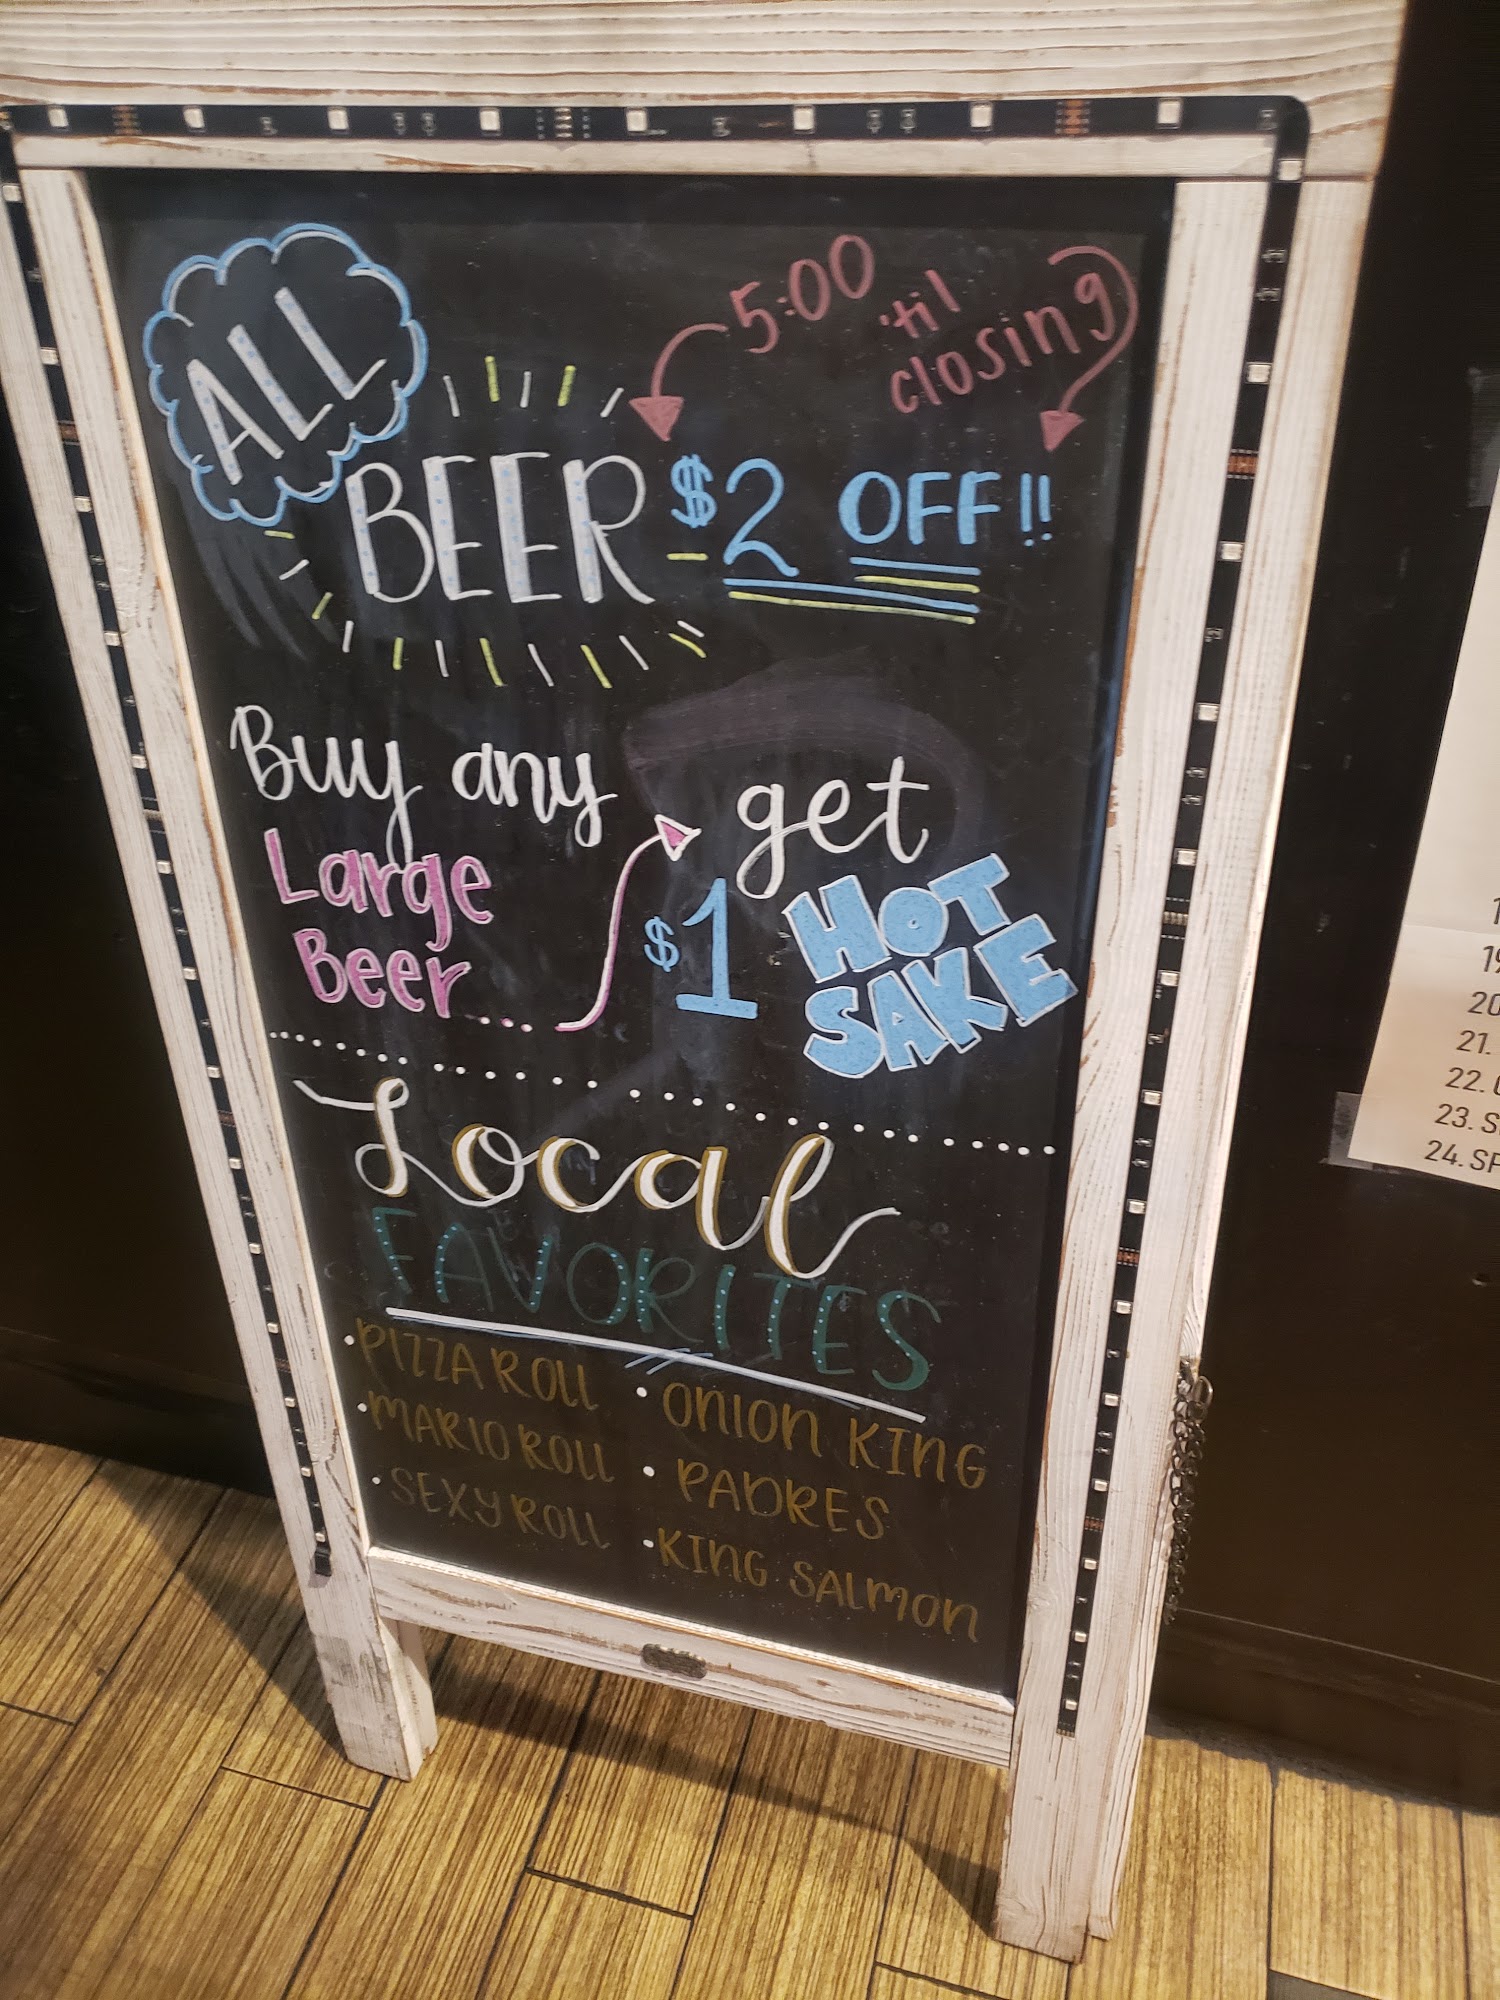 ALL
5:00 'til
closing
BEER $2 OFF!!
Buy any
Large
Beer....
get
$1 HOT
SAKE
Local
FAVORITES
• PIZZA ROLL
• MARIO ROLL
• SEXY ROLL
• ONION KING
• PADRES
• KING SALMON
20
21.
22.
23. S
24. SP